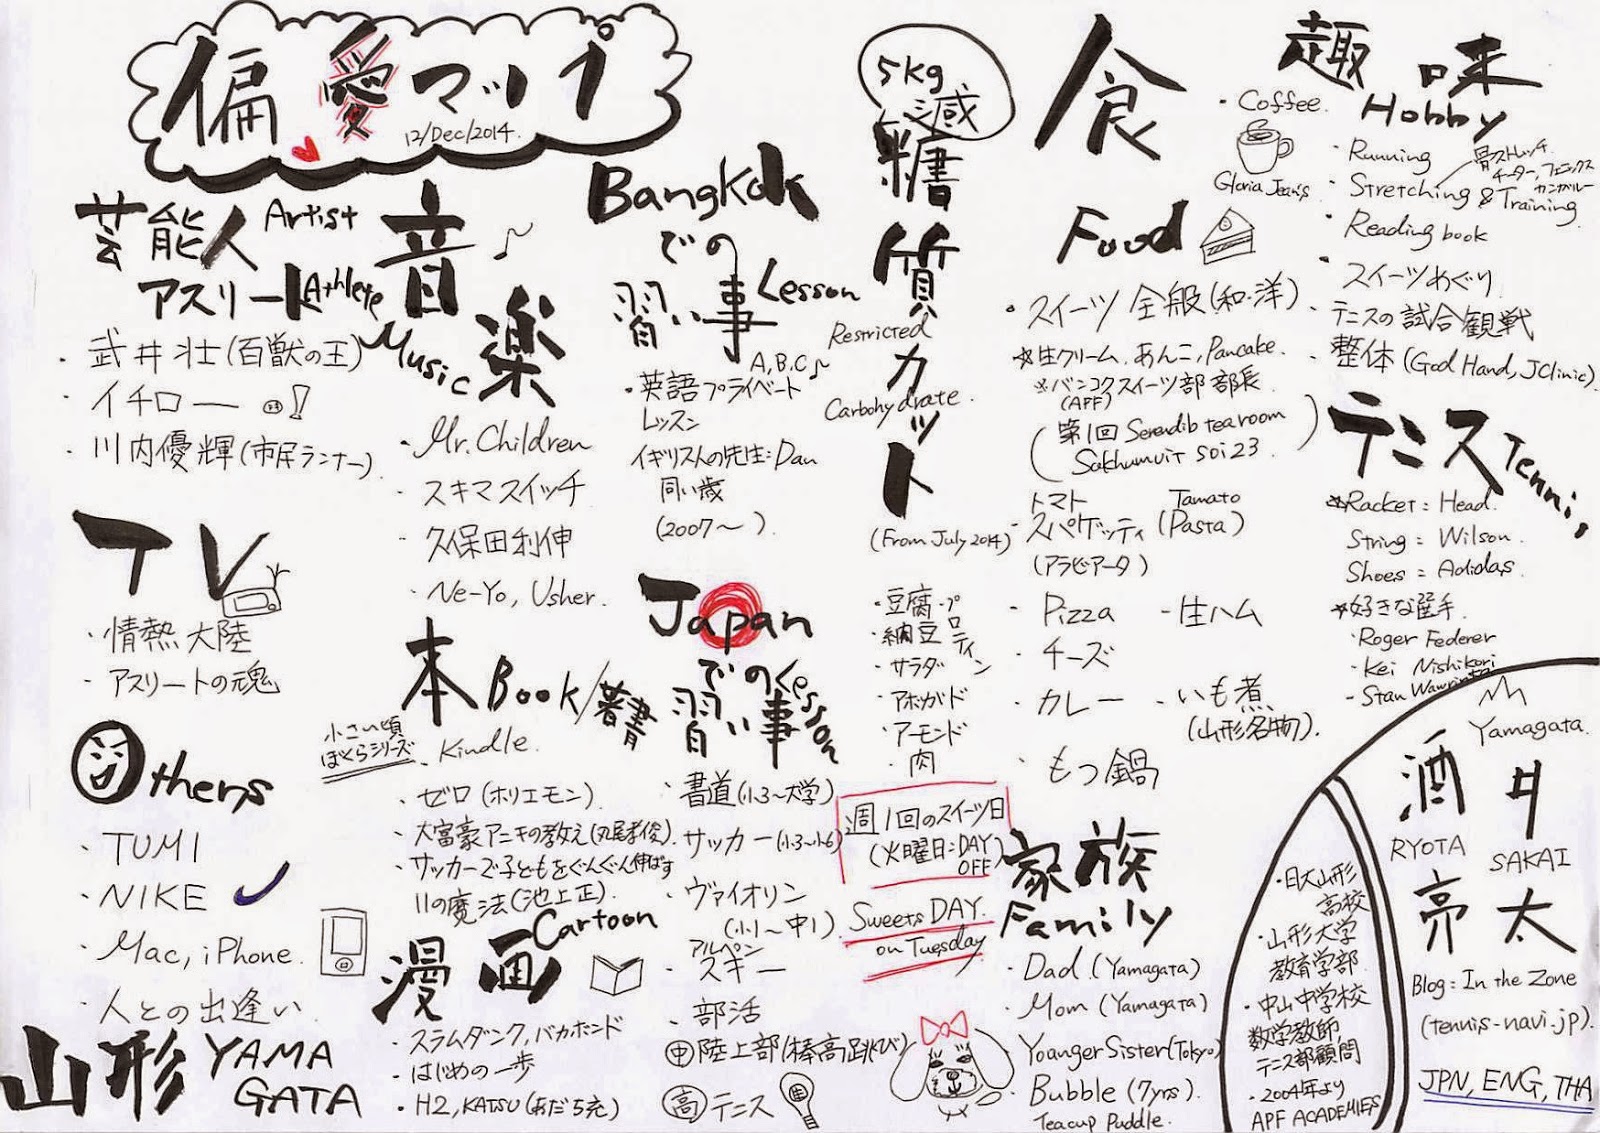 偏愛マップ
12/Dec/2014.
芸能人 Artist
アスリート Athlete
・武井壮(百獣の王)
・イチロー
・川内優輝(市民ランナー)
TV
・情熱大陸
・アスリートの魂
Others
・TUMI
・NIKE
・Mac, iPhone.
・人との出逢い.
山形 YAMAGATA
音楽 Music
・Mr. Children
・スキマスイッチ
・久保田利伸
・Ne-Yo, Usher.
本 Book/著書
小さい頃
ぼくらシリーズ
・Kindle.
・ゼロ(ホリエモン)
・大富豪アニキの教え(丸尾孝俊)
・サッカーで子どもをぐんぐん伸ばす
11の魔法(池上正)
漫画 Cartoon
・スラムダンク, バカボンド
・はじめの一歩
・H2, KATSU(あだち充)
Bangkok
での
習い事 Lesson
A, B, C♪
・英語プライベート
レッスン
イギリス人の先生:Dan
同い歳
(2007〜 ).
Japan
での
習い事 Lesson
・書道(小3〜大学)
・サッカー(小3〜小6)
・ヴァイオリン
(小1〜中1)
・アルペン
スキー
・部活
中 陸上部(棒高跳び)
高 テニス
5kg
減
糖質カット
Restricted
Carbohydrate.
(From July 2014)
・豆腐・プロティン
・納豆
・サラダ
・アボカド
・アーモンド
・肉
週1回のスイーツ日
(火曜日:DAY
OFF)
Sweets DAY.
on Tuesday
食
Food
・スイーツ全般(和・洋)
☆生クリーム、あんこ, Pancake.
※バンコクスイーツ部 部長
(APF)
(第1回 Serendib tearoom
Sukhumvit soi 23.)
トマト Tamato
・スパゲッティ(Pasta)
(アラビアータ)
・Pizza ・生ハム
・チーズ
・カレー ・いも煮
(山形名物).
・もつ鍋
家族
Family
・Dad (Yamagata)
・Mom (Yamagata)
・Yoanger Sister (Tokyo)
・Bubble (7yrs).
Teacup Puddle.
趣味
Hobby
・Coffee.
Gloria Jean's
・Running
・Stretching & Training
骨ストレッチ
チーター, フェニックス
カンガルー
・Reading book
・スイーツめぐり
・テニスの試合観戦
・整体(God Hand, JClinic).
テニス Tennis
☆Racket : Head.
String : Wilson.
Shoes : Adidas.
☆好きな選手.
・Roger Federer
・Kei Nishikori
・Stan Wawrinka
Yamagata.
酒井
RYOTA SAKAI
亮太
Blog : In the Zone
(tennis-navi.jp).
JPN, ENG, THA
・日大山形
高校
・山形大学
教育学部
・中山中学校
数学教師,
テニス部顧問
・2004年より
APF ACADEMIES